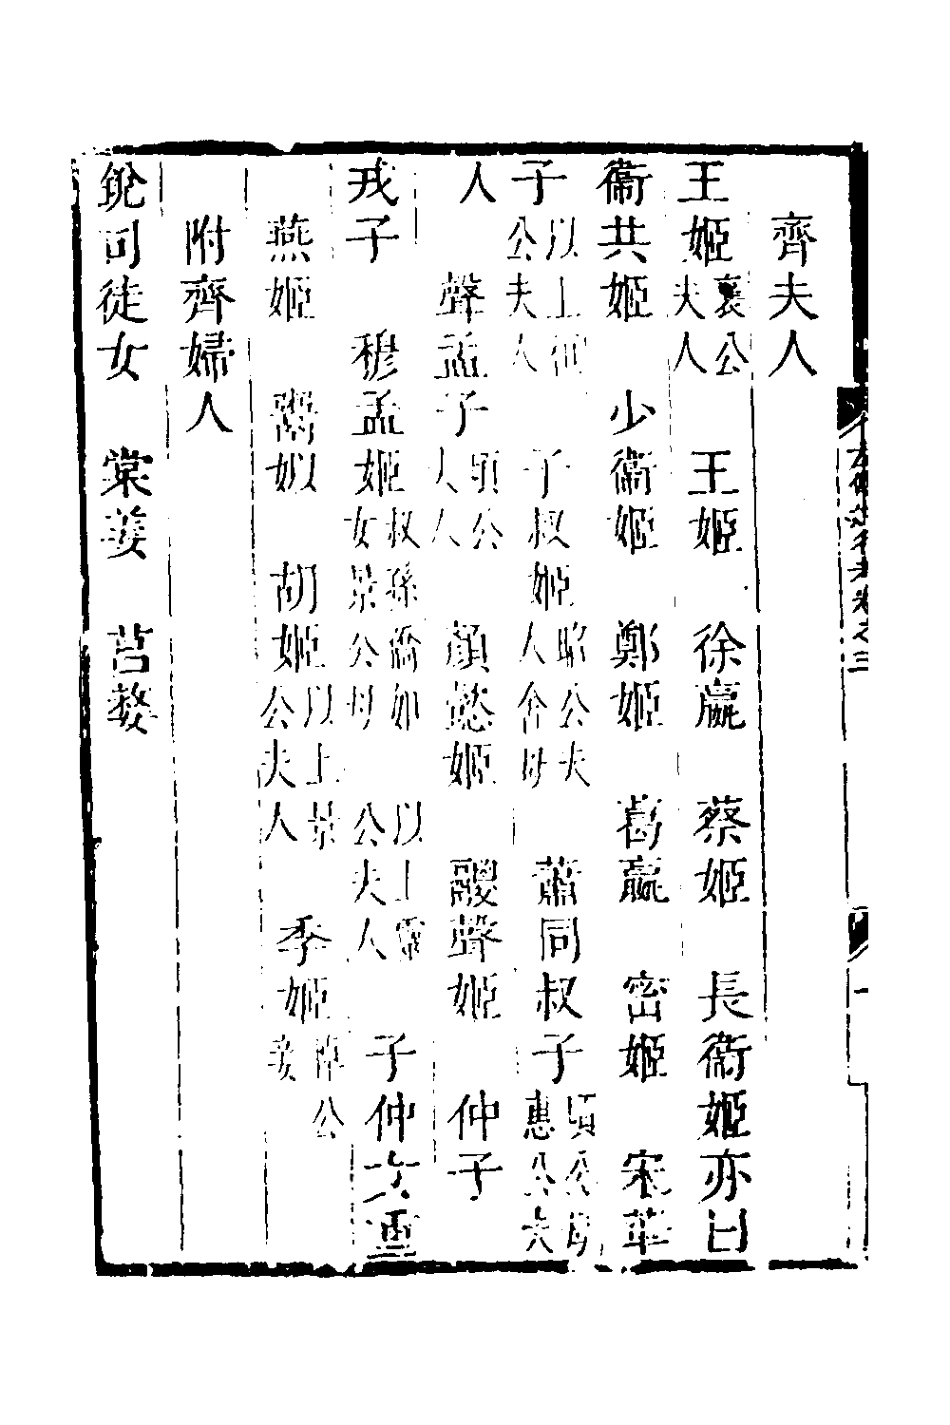 齊夫人
王姬襄公夫人 王姬 徐嬴 蔡姬 長衞姬亦曰
衞共姬 少衞姬 鄭姬 葛嬴 密姬 宋華
子以上桓公夫人 子叔姬昭公夫人舍母 蕭同叔子頃公母惠公夫
人 聲孟子頃公夫人 顏懿姬 鬷聲姬 仲子
戎子 穆孟姬叔孫僑如女景公母 以上靈公夫人 子仲
燕姬 鬻姒 胡姬以上景公夫人 季姬悼公
附齊婦人
銳司徒女 棠姜 莒嫠
卷之三
一